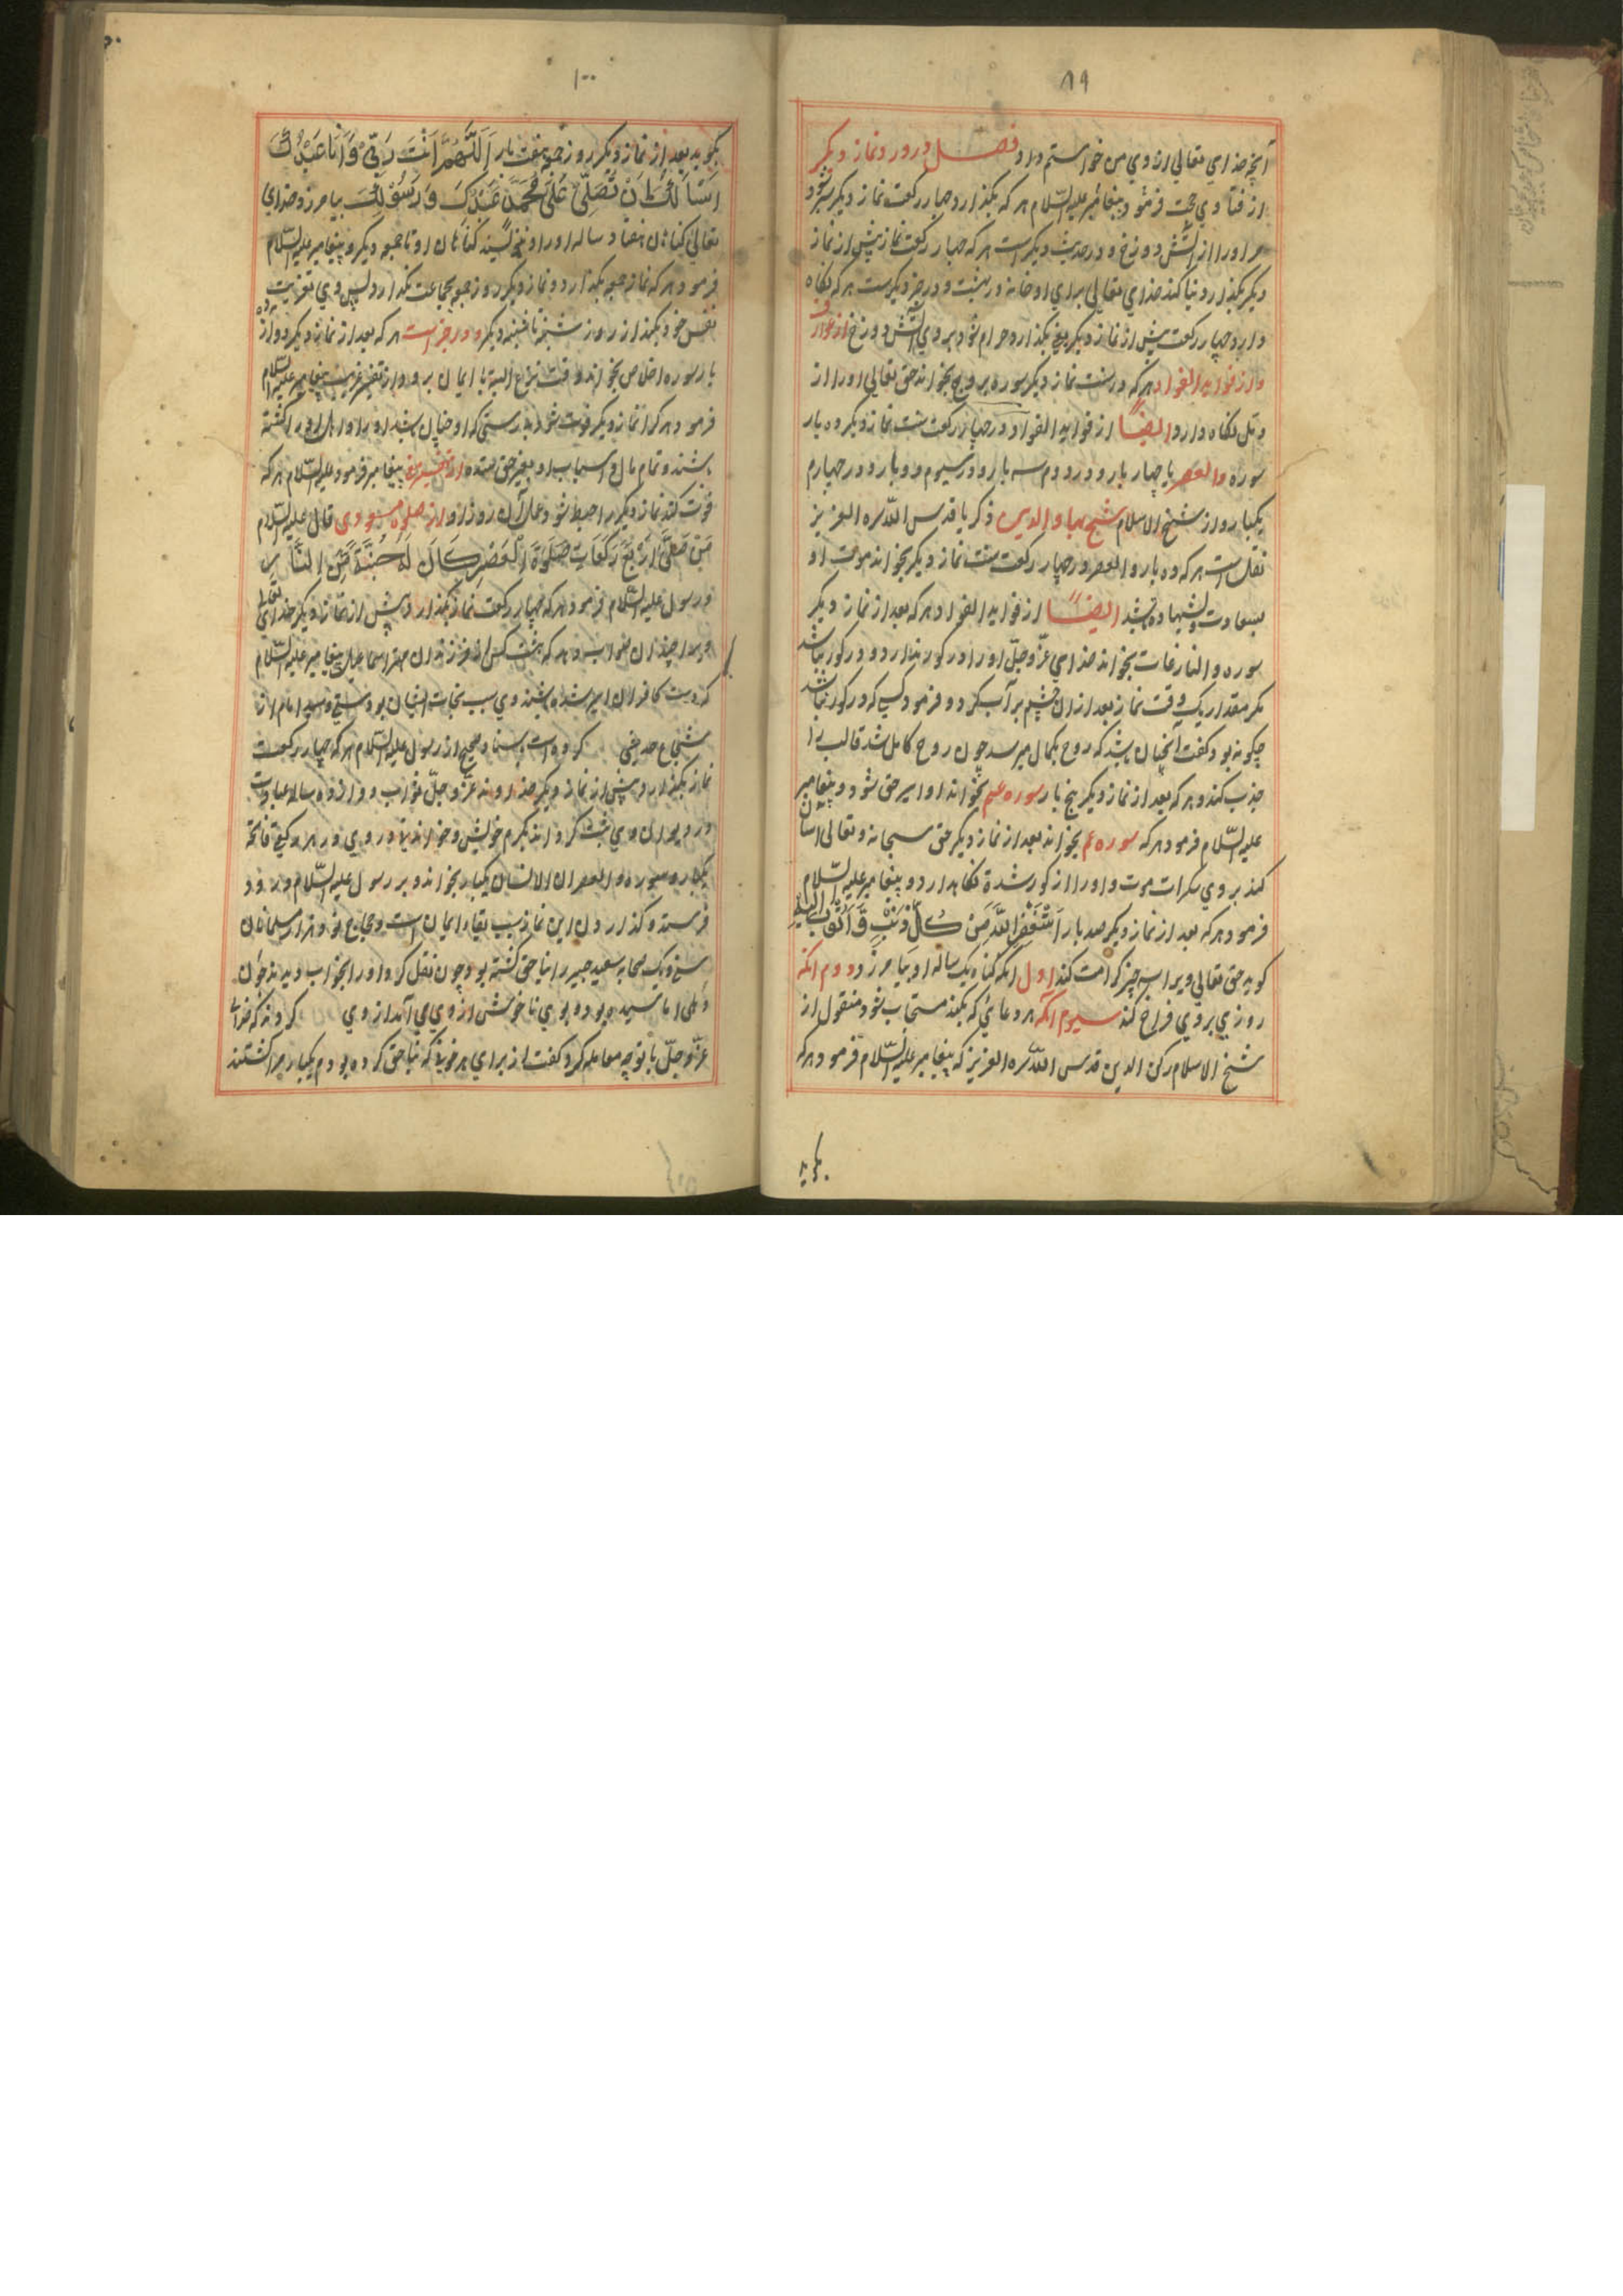 ۸۹
آنچه خدای تعالی از وی من خواستم داد فصل در ورد نماز دیگر
از فتاوی حجت فرمود پیغامبر علیه السلام هر که بگذارد چهار رکعت نماز دیگر سپر شود
مر او را از آتش دوزخ و در حدیث دیگر است هر که چهار رکعت نماز پیش از نماز
دیگر بگذارد بنا کند خدای تعالی برای او خانه در بهشت و در خبر دیگرست هر که نگاه
دارد چهار رکعت پیش از نماز دیگر یعنی بگذارد حرام شود بر وی آتش دوزخ از عوارف
و از فواید الفواد هر که در سنت نماز دیگر سوره بروج بخواند حق تعالی او را از
دمّل نگاه دارد ایضاً از فواید الفواد در چهار رکعت سنت نماز دیگر ده بار
سوره والعصر یا چهار بار و در دوم سه بار و در سیوم دو بار و در چهارم
یکبار و از شیخ الاسلام شیخ بهاء الدین ذکریا قدس الله سره العزیز
نقل است هر که ده بار والعصر در چهار رکعت سنت نماز دیگر بخواند موت او
بسعادت و شهادت باشد ایضاً از فواید الفواد هر که بعد از نماز دیگر
سوره والنازعات بخواند خدای عزّ وجلّ او را در کور نذارد و در کور نباشد
مگر مقدار یک وقت نماز بعد ازان چشم پر آب کرد و فرمود کسی که در کور نباشد
چگونه بود گفت آنچنان باشد که روح بکمال میرسد چون روح کامل شد قالب را
جذب کند و هر که بعد از نماز دیگر پنج بار سوره عم بخواند او اسیر حق شود و پیغامبر
علیه السلام فرمود هر که سوره عم بخواند بعد از نماز دیگر حق سبحانه و تعالی آسان
کند بر وی سکرات موت و او را از کور شدة نگاهدارد و پیغامبر علیه السلام
فرمود هر که بعد از نماز دیگر صد بار اَسْتَغْفِرُ اللّٰهَ مِنْ كُلِّ ذَنْبٍ وَاَتُوْبُ اِلَيْهِ
گوید حق تعالی ویرا سه چیز کرامت کند اول آنکه گناه یک ساله او بیامرزد دوم آنکه
روزی بر وی فراخ کند سیوم آنکه هر دعائی که بکند مستجاب شود منقول از
شیخ الاسلام رکن الدین قدس الله سره العزیز که پیغامبر علیه السلام فرمود هر که
بگوید
۱۰۰
بگوید بعد از نماز دیگر روز جمعه هفت بار اَللّٰهُمَّ اَنْتَ رَبِّيْ وَاَنَا عَبْدُكَ
اَسْاَلُكَ اَنْ تُصَلِّيَ عَلٰى مُحَمَّدٍ عَبْدِكَ وَرَسُوْلِكَ بیامرزد خدای
تعالی گناهان هفتاد ساله او را و ننویسند گناهان او تا جمعه دیگر و پیغامبر علیه السلام
فرمود هر که نماز جمعه بگذارد و نماز دیگر روز جمعه بجماعت بگذارد پس وی تعزیت
نفس خود بکند از روز شنبه تا شنبه دیگر و در خبر است هر که بعد از نماز دیگر دوازده
بار سوره اخلاص بخواند وقت نزاع البته با ایمان برود و از تفسیر غریب پیغامبر علیه السلام
فرمود هر کرا نماز دیگر فوت شود بدرستی که او چنان باشد او را و اهل او را کشته
باشند و تمام مال و اسباب او بغیر حق ستده از تفسیر پیغامبر فرمود علیه السلام هر که
فوت کند نماز دیگر را حبط شود عمل آن روز او از صلوة مسعودی قال علیه السلام
مَنْ صَلّٰى اَرْبَعَ رَكَعَاتٍ صَلٰوةَ الْعَصْرِ كَانَ لَهُ جُنَّةً مِّنَ النَّارِ
و رسول علیه السلام فرمود هر که چهار رکعت نماز بگذارد پیش از نماز دیگر خدای تعالی
مر او را چندان ثواب دهد که هشت کس از فرزندان مهتر اسماعیل پیغامبر علیه السلام
که دست کافران اسیر شده باشند وی سبب نجات ایشان بود سیّد امام از
شجاع حدیثی کرده است بسناد صحیح از رسول علیه السلام هر که چهار رکعت
نماز بگذارد پیش از نماز دیگر خداوند عزّ وجلّ ثواب دوازده ساله عبادت
در دیوان وی ثبت کرداند بکرم خویش و خواند در وی در هر رکعتی فاتحة
یکبار و سوره والعصر ان الانسان یکبار بخواند و بر رسول علیه السلام درود
فرستد و گذاردن این نماز سبب بقاء ایمان است
سعید جبیر را بناحق کشته بود چون نقل کرد او را بخواب دیدند چون
بوی ناخوش از وی می آمد از وی کردند که خدای
عزّ وجلّ با تو چه معامله کرد گفت از برای هر خونی که بناحق کرده بودم یکبار مرا کشتند